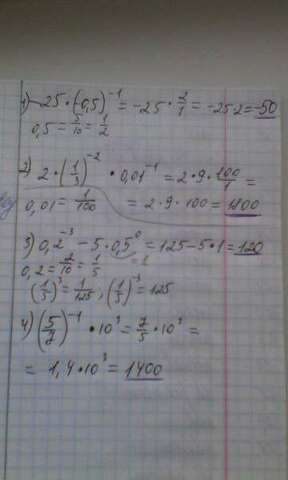 1) -25 · (0,5)⁻¹ = -25 · 2/1 = -25·2 = -50
0,5 = 5/10 = 1/2
2) 2 · (1/3)⁻² · 0,01⁻¹ = 2 · 9 · 100/1 =
0,01 = 1/100 = 2 · 9 · 100 = 1800
3) 0,2⁻³ - 5 · 0,5⁰ = 125 - 5 · 1 = 120
0,2 = 2/10 = 1/5
(1/5)³ = 1/125; (1/5)⁻³ = 125
4) (5/7)⁻¹ · 10³ = 7/5 · 10³ =
= 1,4 · 10³ = 1400